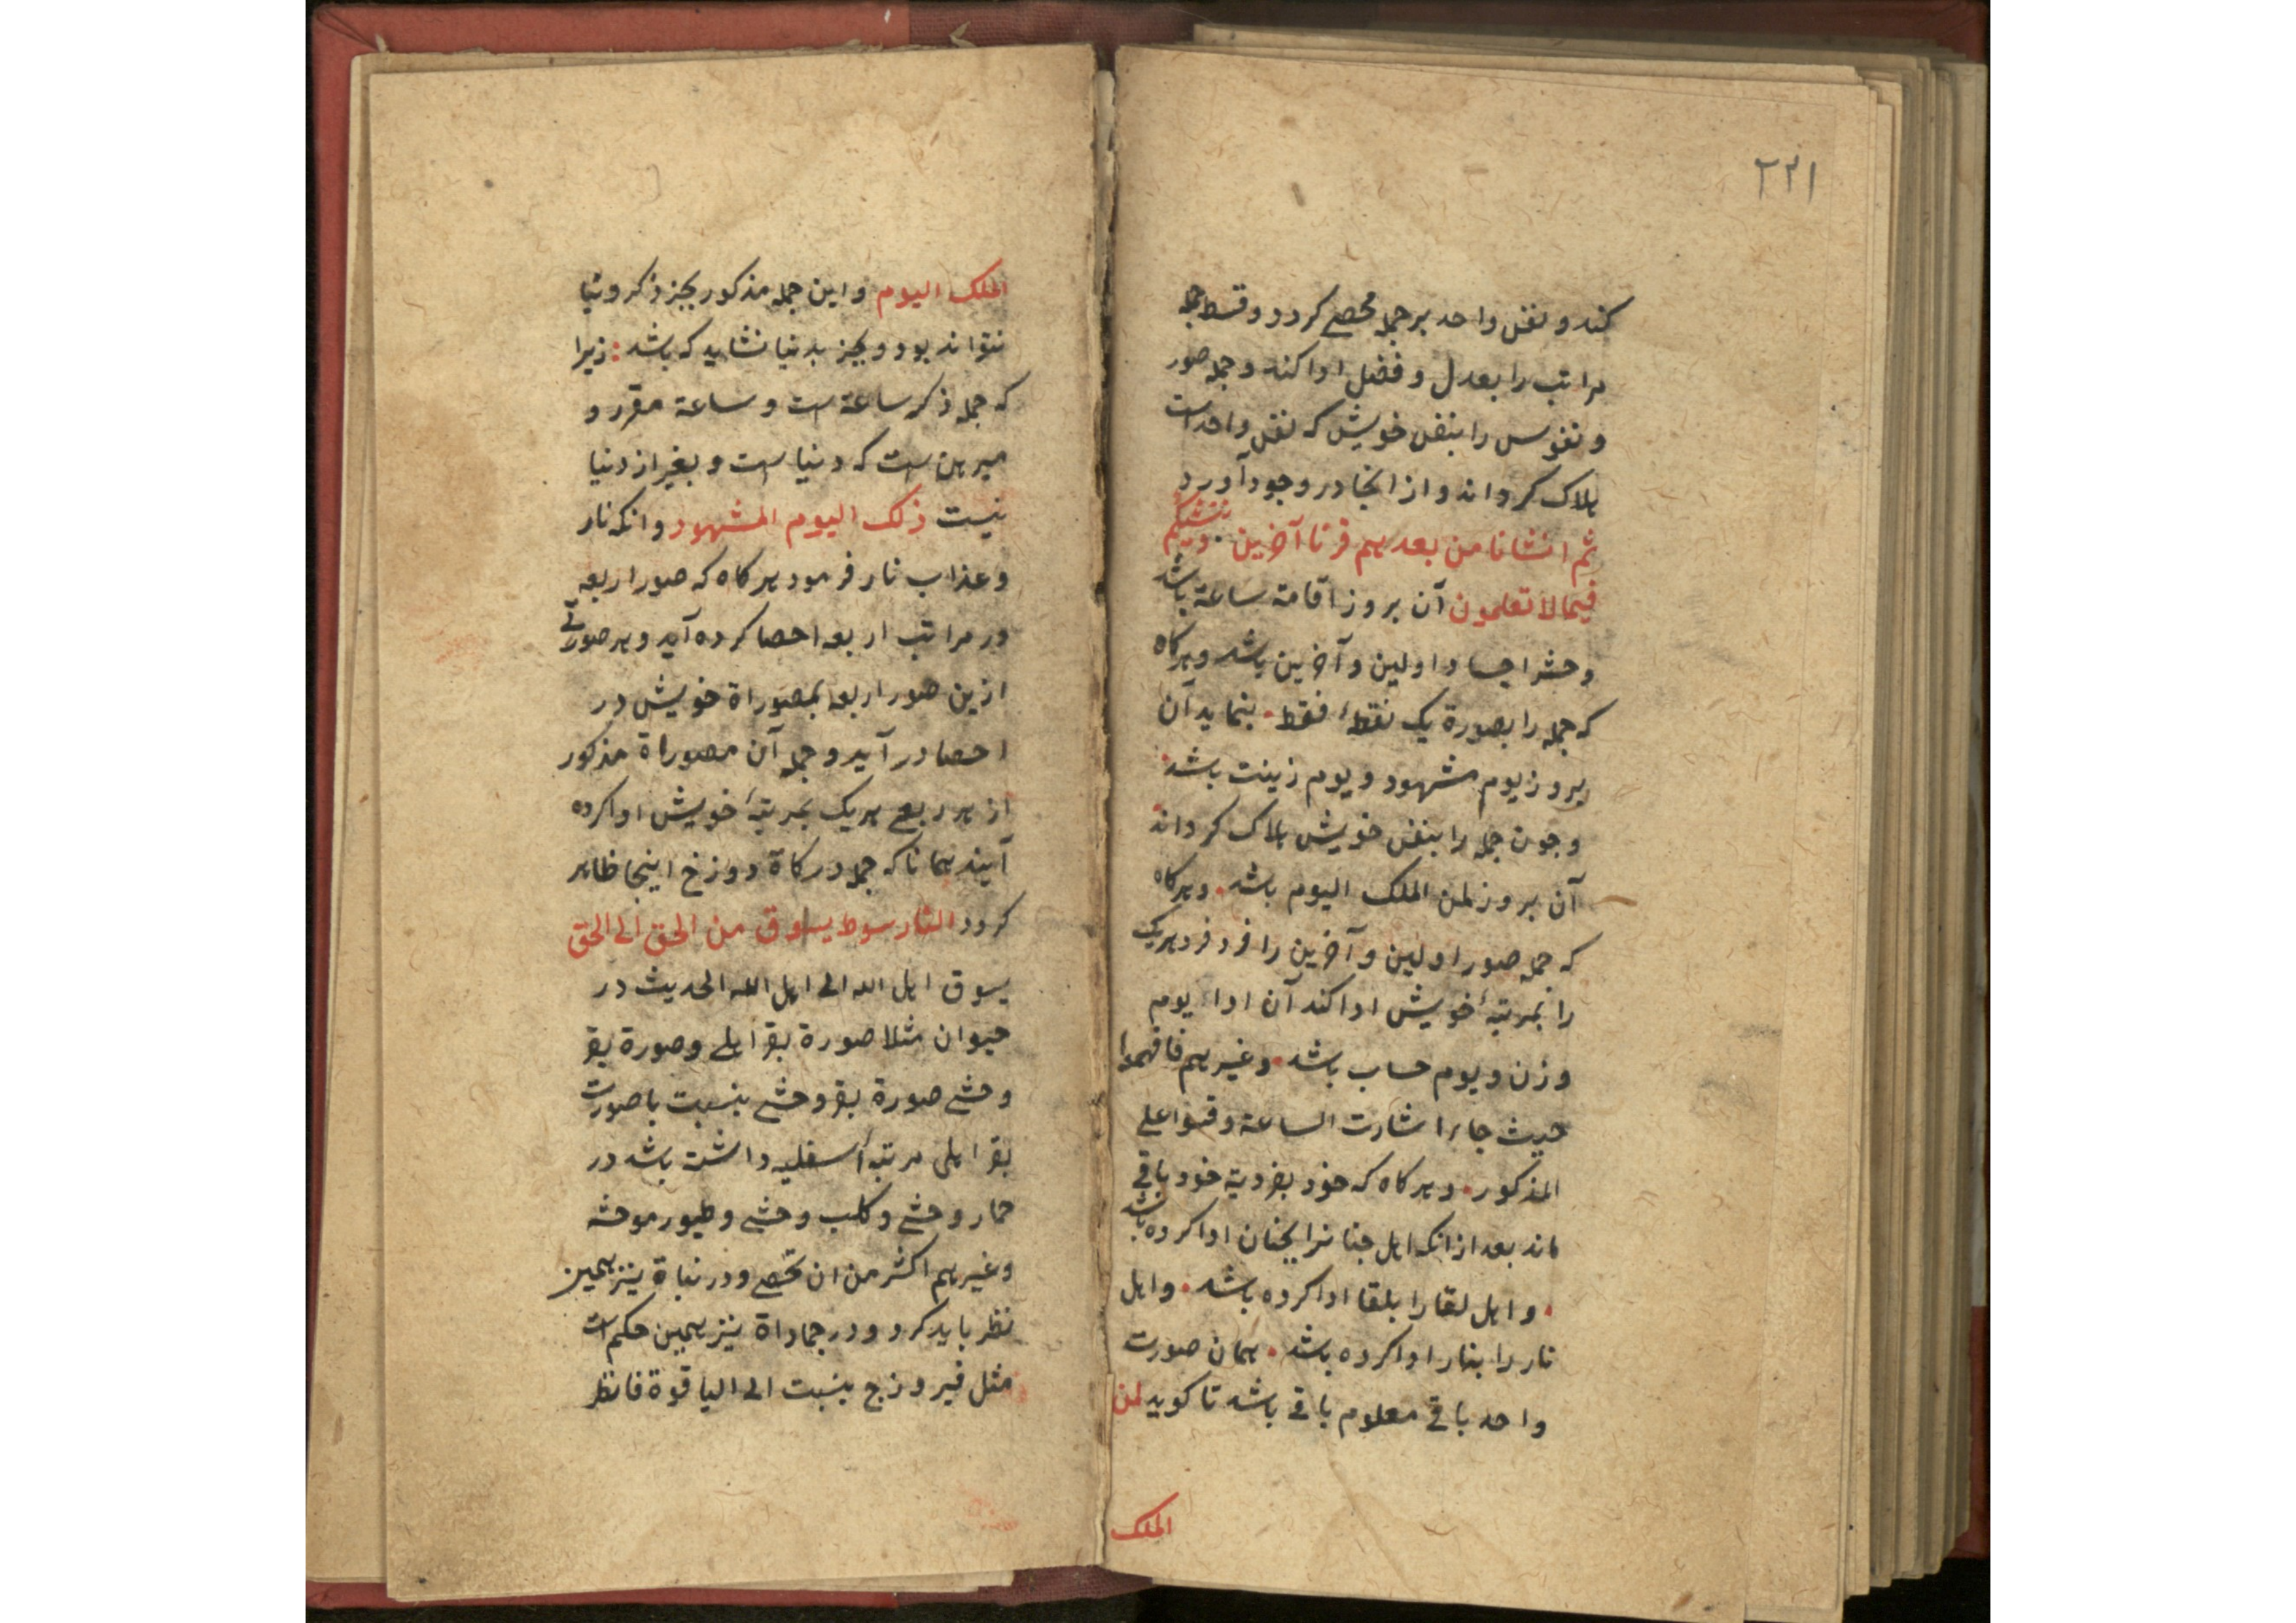 ۲۲۱
کند و نفس واحد بر جمله محصی کردد و قسط جمله
مراتب را بعدل و فضل ادا کند و جمله صور
و نفوس را بنفس خویش که نفس واحد است
هلاک کرداند و از انجا در وجود آورد
ثم انشانا من بعدهم قرنا آخرین • و ننشئکم
فیما لا تعلمون آن بروز اقامة ساعة باشد
و حشر اجساد اولین و آخرین باشد و هرکاه
که جمله را بصورة یک نقطهٔ فقط • بنماید آن
بروز یوم مشهود و یوم زینت باشد •
و جون جمله را بنفس خویش هلاک کرداند •
آن بروز لمن الملک الیوم باشد • و هرکاه
که جمله صور اولین و آخرین را فرد فرد هریک
را بمرتبهٔ خویش ادا کند آن اداء یوم
وزن و یوم حساب باشد • و غیرهم فافهموا
حیث جاء اشارت الساعة وقسوا علی
المذکور • و هرکاه که خود بفردیة خود باقی
ماند بعد از انکه اهل جنانرا بجنان ادا کرده باشد
• و اهل لقا را بلقا ادا کرده باشد • و اهل
نار را بنار ادا کرده باشد • همان صورت
واحد باقی معلوم باقی باشد تا کوید لمن
الملک
الملک الیوم و این جمله مذکور بجز ذکر و نبا
نتواند بود و بجز بدنیا نشاید که باشد : زیرا
که جمله ذکر ساعة است و ساعة مقرر و
مبرهن است که دنیا است و بغیر از دنیا
نیست ذلک الیوم المشهود و انکه نار
و عذاب نار فرمود هرکاه که صور اربعه
در مراتب اربعه احصا کرده آید و هر صورتی
ازین صور اربعه بمصوراة خویش در
احصا در آید و جمله آن مصوراة مذکور
از هر ربعی هریک بمرتبهٔ خویش ادا کرده
آیند همانا که جمله درکاة دوزخ اینجا ظاهر
کردد النار سوط یسوق من الحق الی الحق
یسوق اهل الله الی اهل الله الحدیث در
حیوان مثلا صورة بقر اهلی و صورة بقر
وحشی صورة بقر وحشی بنسبت با صورت
بقر اهلی مرتبهٔ اسفلیه داشت باشد در
حمار وحشی و کلب وحشی و طیور موحشه
و غیرهم اکثر من ان تحصی و در نباة نیز همین
نظر باید کرد و در جماداة نیز همین حکم است
مثل فیروزج بنسبت الی الیاقوة فانظر